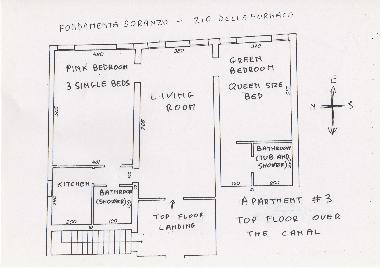 FONDAMENTA SORANZO - RIO DELLE FORNACI
PINK BEDROOM
3 SINGLE BEDS
LIVING
ROOM
GREEN
BEDROOM
QUEEN SIZE
BED
E
N
S
KITCHEN
BATHROOM
(SHOWER)
BATHROOM
(TUB AND
SHOWER)
TOP FLOOR
LANDING
APARTMENT #3
TOP FLOOR OVER
THE CANAL